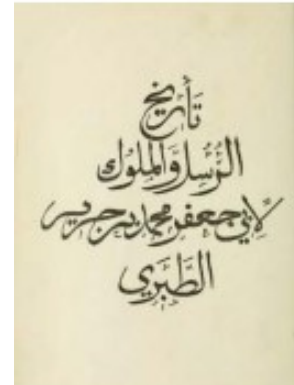 تأريخ
الرُّسل وَالملوك
لأبي جعفر محمد بن جرير
الطَّبَرِي